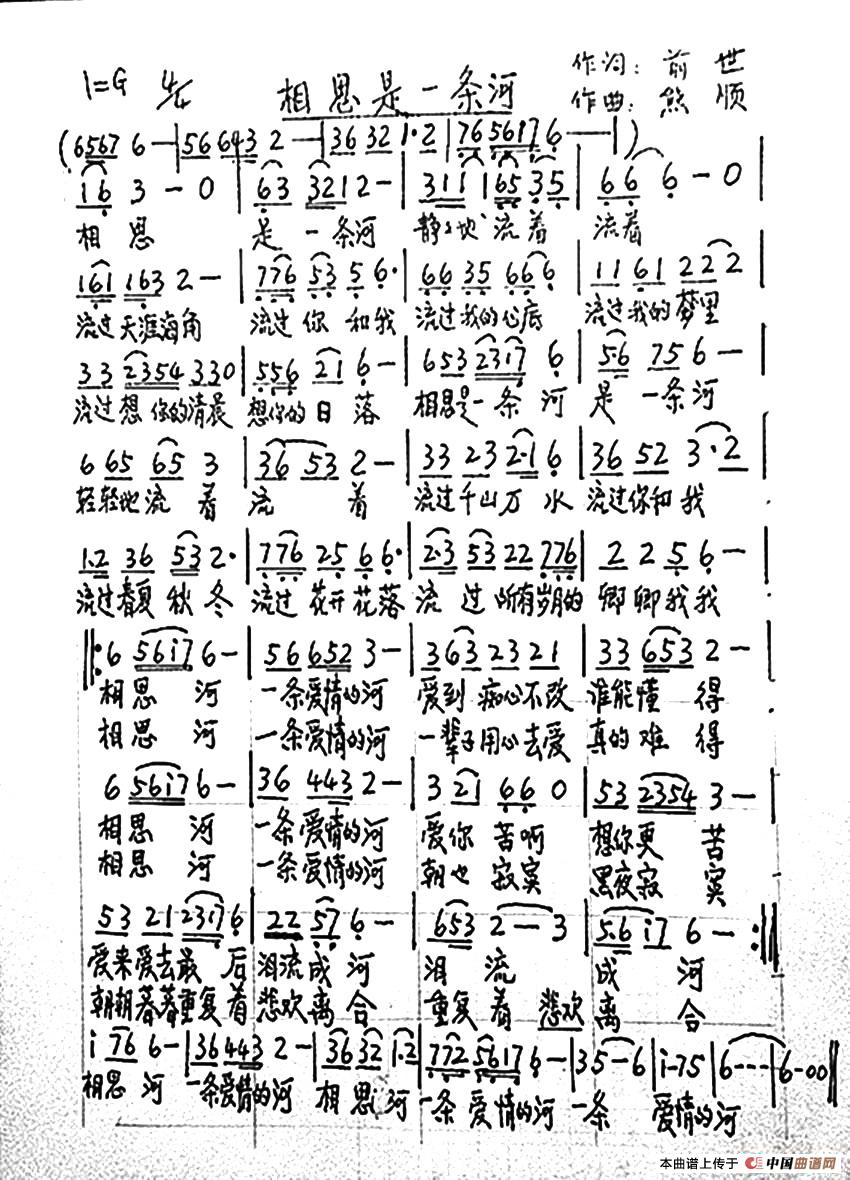 1=G 4/4 相思是一条河 作词：前世
作曲：熊顺
(6567 6—|56 643 2—|36 32 1·2|76 5617 6—|)
16 3 — 0 | 63 321 2— | 311 165 35 | 66 6 — 0 |
相思 是一条河 静静地流着 流着
161 163 2— | 776 53 5 6· | 66 35 66 6 | 11 61 22 2 |
流过天涯海角 流过你和我 流过我的心底 流过我的梦里
33 2354 330 | 556 21 6— | 653 2317 6 | 5·6 75 6— |
流过想你的清晨 想你的日落 相思是一条河 是一条河
6 65 65 3 | 36 53 2— | 33 23 2·1 6 | 36 52 3·2 |
轻轻地流着 流着 流过千山万水 流过你和我
1·2 36 53 2· | 776 25 6 6· | 2·3 53 22 776 | 2 2 5 6— |
流过春夏秋冬 流过花开花落 流过所有岁月的 卿卿我我
‖: 6 56i7 6— | 56 652 3— | 363 23 21 | 33 653 2— |
相思河 一条爱情的河 爱到痴心不改 谁能懂得
相思河 一条爱情的河 一辈子用心去爱 真的难得
6 56i7 6— | 36 443 2— | 3 21 66 0 | 53 2354 3— |
相思河 一条爱情的河 爱你苦啊 想你更苦
相思河 一条爱情的河 朝也寂寞 黑夜寂寞
53 21 2317 6 | 22 57 6— | 653 2—3 | 5·6 i7 6— :‖
爱来爱去最后 泪流成河 泪流成河
朝朝暮暮重复着 悲欢离合 重复着悲欢离合
i 76 6—|36 443 2—|36 32 1·2|772 5617 6—|35—6|i-75|6---|6-00‖
相思河 一条爱情的河 相思河 一条爱情的河 一条 爱情的河
本曲谱上传于 中国曲谱网